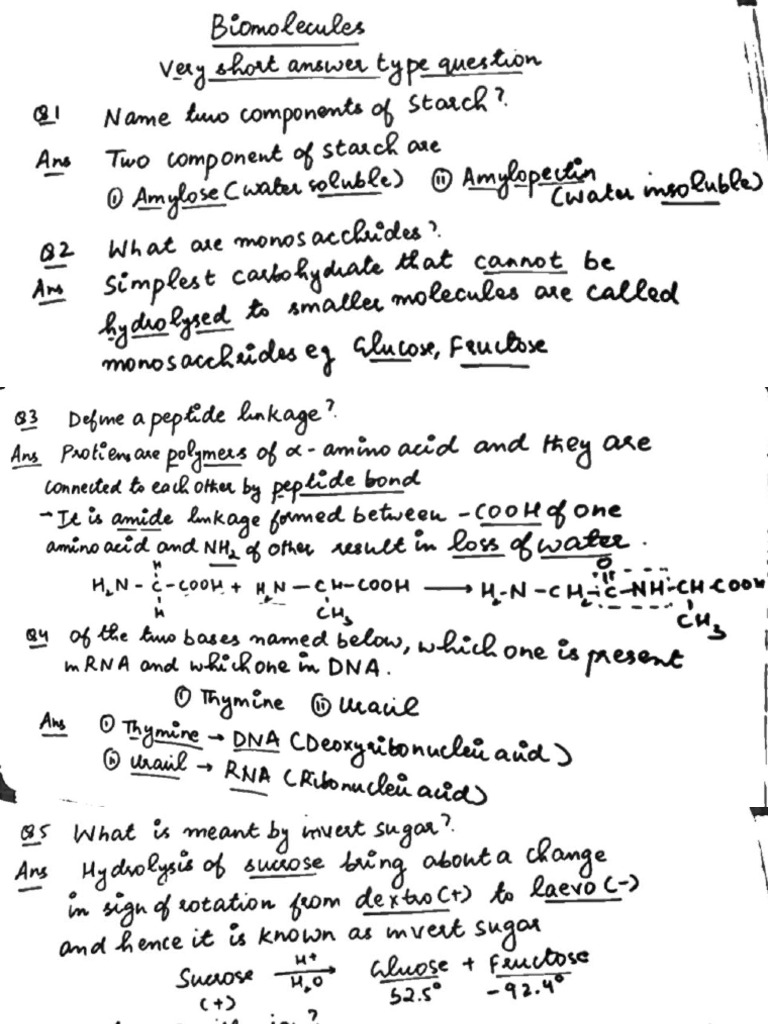 Biomolecules
Very short answer type question
Q1 Name two components of starch?
Ans Two component of starch are
(i) Amylose (water soluble) (ii) Amylopectin (water insoluble)
Q2 What are monosacchrides?
Ans Simplest carbohydrate that cannot be
hydrolysed to smaller molecules are called
monosacchrides eg Glucose, Fructose
Q3 Define a peptide linkage?
Ans Protiens are polymers of α-amino acid and they are
connected to each other by peptide bond
- It is amide linkage formed between -COOH of one
amino acid and NH2 of other result in loss of water.
H
O
H2N - C - COOH + H2N - CH - COOH → H2-N - CH2 - C - NH - CH - COOH
H
CH3
CH3
Q4 Of the two bases named below, which one is present
in RNA and which one in DNA.
(i) Thymine (ii) Uracil
Ans (i) Thymine → DNA (Deoxyribonucleic acid)
(ii) Uracil → RNA (Ribonucleic acid)
Q5 What is meant by invert sugar?
Ans Hydrolysis of sucrose bring about a change
in sign of rotation from dextro (+) to laevo (-)
and hence it is known as invert sugar
H+
Sucrose → Glucose + Fructose
H2O
(+) 52.5° -92.4°